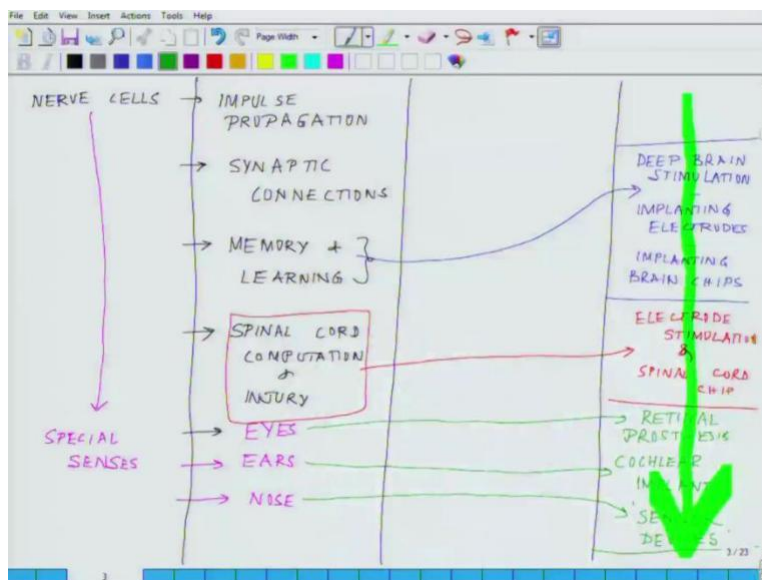 File Edit View Insert Actions Tools Help
Page Width
B I
NERVE CELLS → IMPULSE
PROPAGATION
→ SYNAPTIC
CONNECTIONS
→ MEMORY +
LEARNING
→ SPINAL CORD
COMPUTATION
&
INJURY
SPECIAL
SENSES
→ EYES
→ EARS
→ NOSE
DEEP BRAIN
STIMULATION
IMPLANTING
ELECTRODES
IMPLANTING
BRAIN CHIPS
ELECTRODE
STIMULATION
&
SPINAL CORD
CHIP
RETINAL
PROSTHESIS
COCHLEAR
IMPLANT
DEVICES
3/23
3